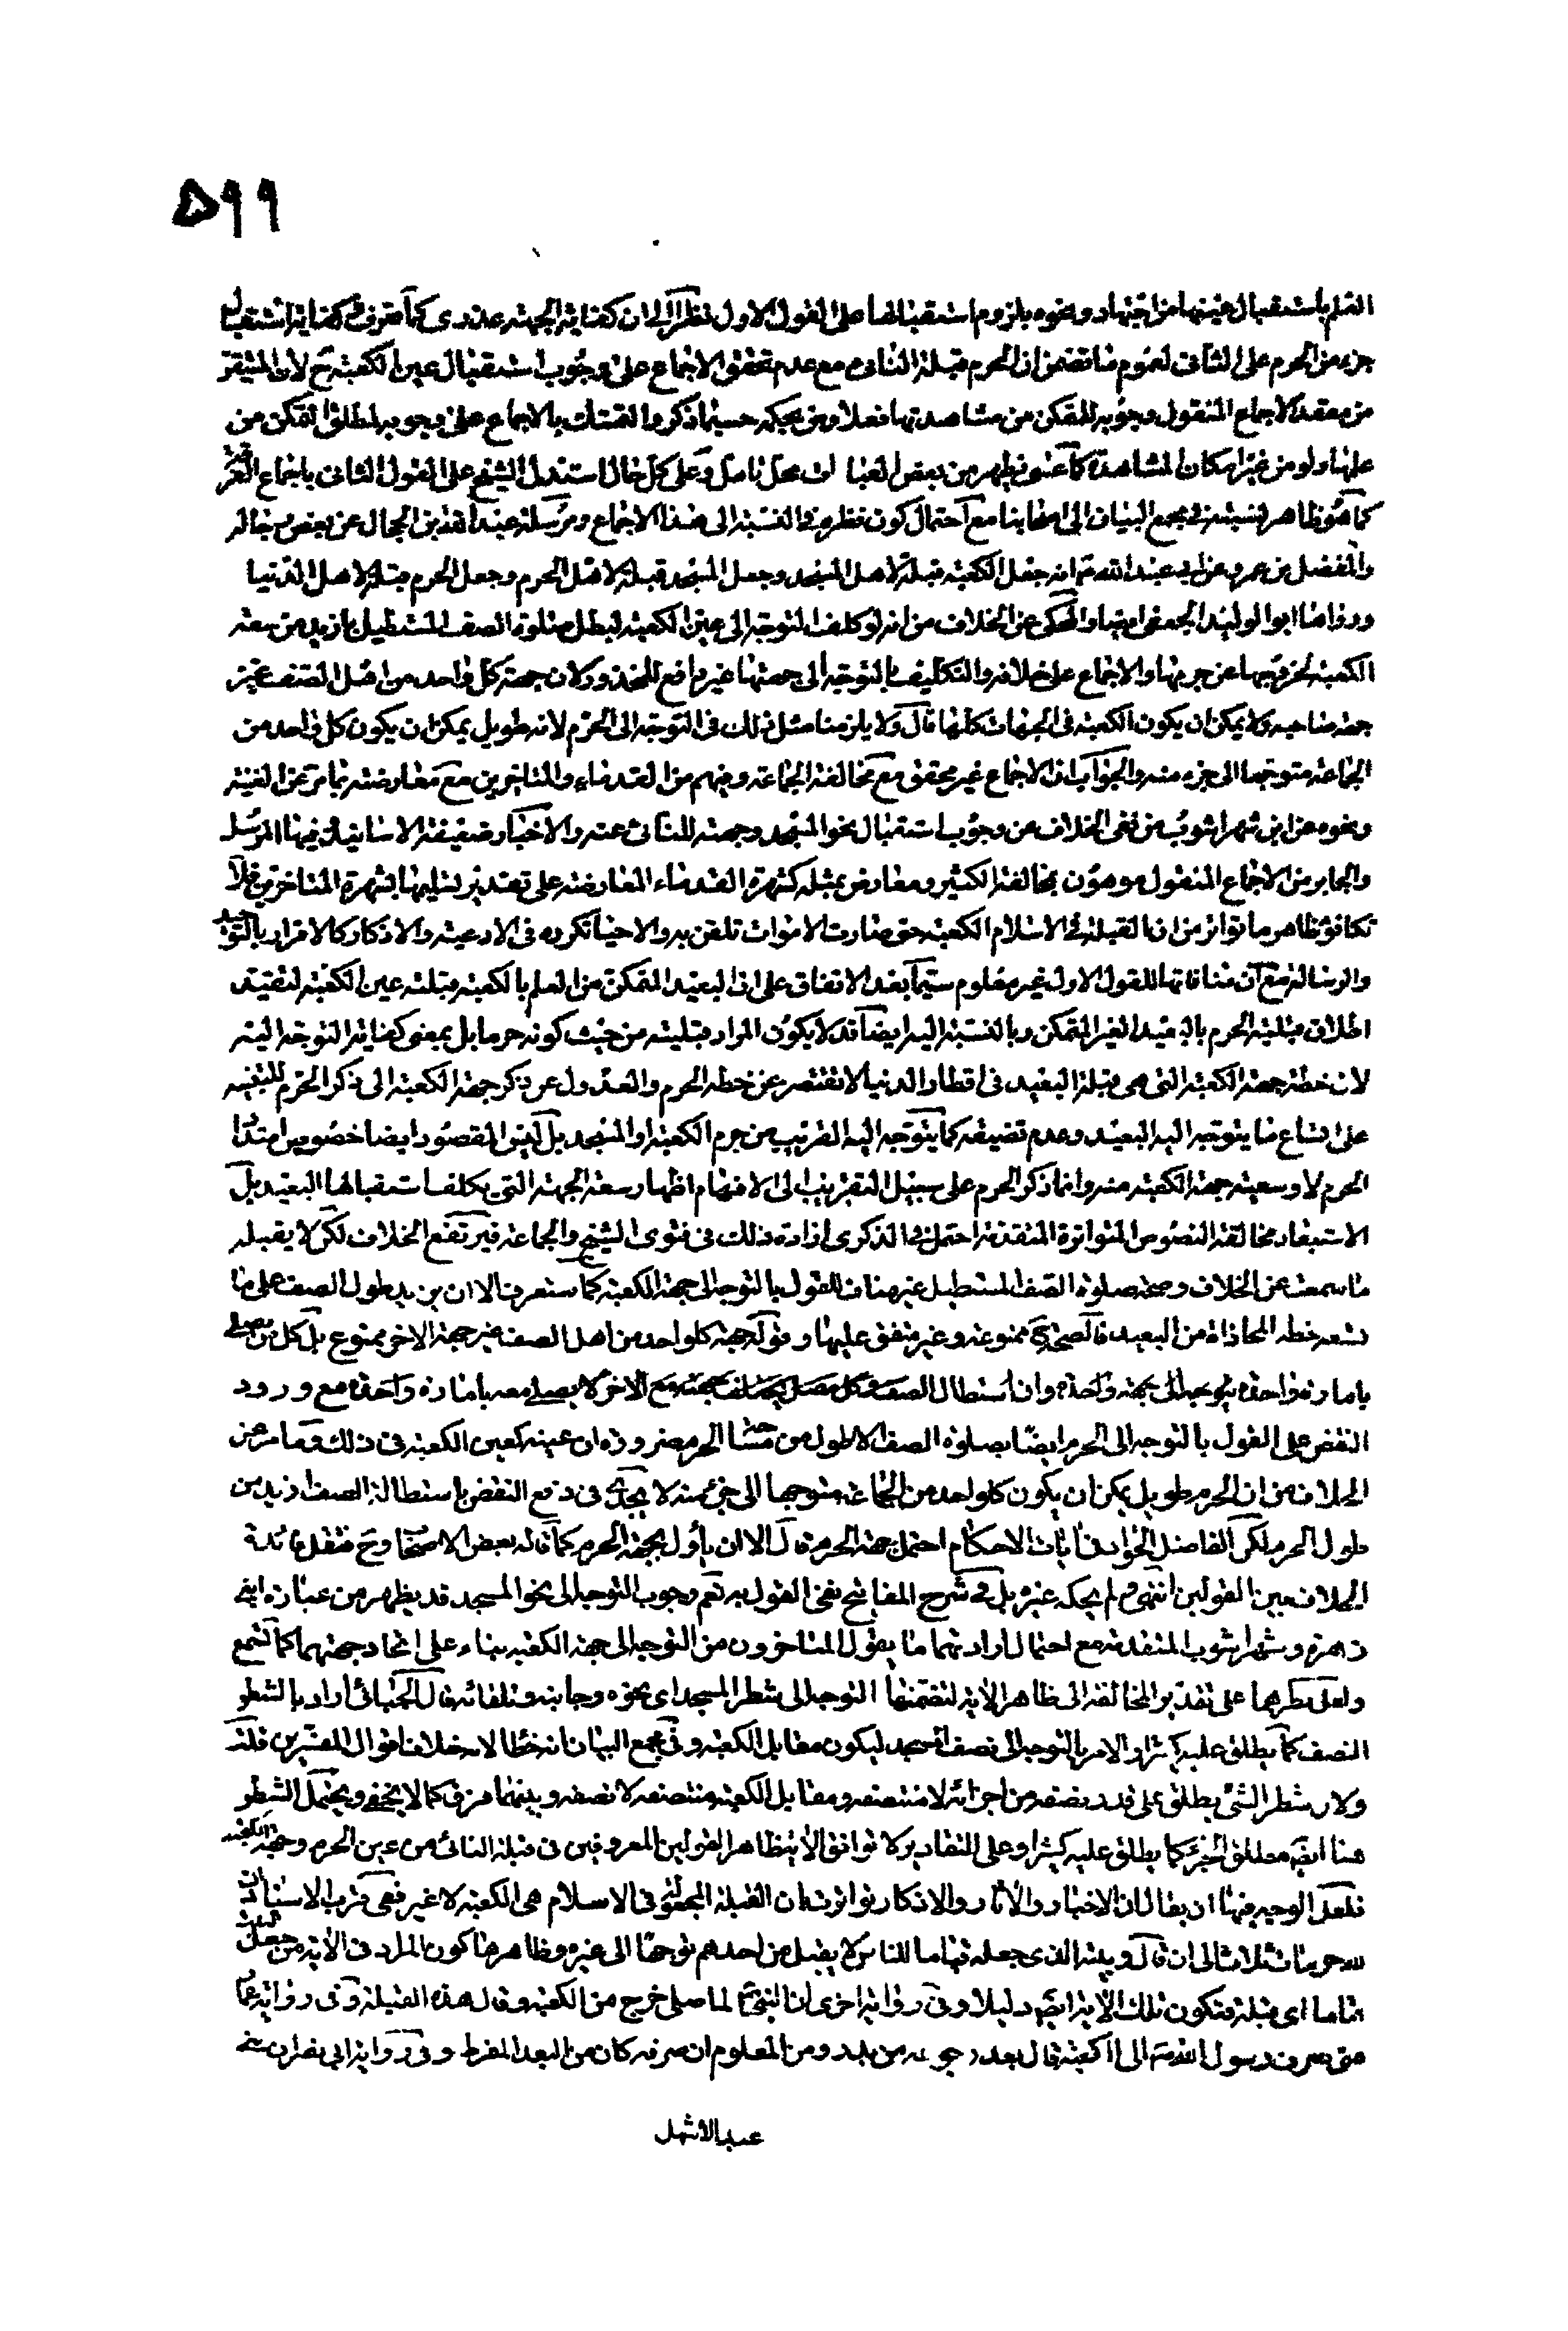 ۵۹۹
العلم باستقبال عينها من اجتهاد ونحوه بلزوم استقبالها على القول الاول نظرا الى ان كفاية الجهة عندى كما تعرف كفاية استقبال
جزء من الحرم على الثانى لعموم ما تضمن ان الحرم قبلة النائى مع عدم تحقق الاجماع على وجوب استقبال عين الكعبة ح لان المتيقن
من معقد الاجماع المنقول وجوبه للمتمكن من مشاهدتها فعلا ومن بحكمه حسبما ذكر والتمسك بالاجماع على وجوبه لمطلق المتمكن من
علمها ولو من غير امكان المشاهدة كما عن ويظهر من بعض العبارات محل تامل وعلى كل حال استدل الشيخ على القول الثانى باجماع الفرقة
كما هو ظاهر نسبته فى مجمع البيان الى اصحابنا مع احتمال كون نظره فى النسبة الى هذا الاجماع ومرسلة عبد الله بن الحجال عن بعض رجاله
والمفضل بن عمر وعن ابى عبد الله ع انه جعل الكعبة قبلة لاهل المسجد وجعل المسجد قبلة لاهل الحرم وجعل الحرم قبلة لاهل الدنيا
ورواها ابو الوليد الجعفى ايضا والمحكى عن الخلاف من انه لو كلف التوجه الى عين الكعبة لبطل صلوة الصف المستطيل بازيد من سعة
الكعبة لخروجها عن جرمها والاجماع على خلافه والتكليف بالتوجه الى جهتها غير دافع للمحذور لان جهة كل واحد من اهل الصف غير
جهة صاحبه ولا يمكن ان يكون الكعبة فى الجهات كلها قال ولا يلزمنا مثل ذلك فى التوجه الى الحرم لانه طويل يمكن ان يكون كل واحد من
الجماعة متوجها الى جزء منه والجواب ان الاجماع غير محقق مع مخالفة الجماعة وفيهم من القدماء والمتاخرين مع معارضته بما مر عن الغنية
ونحوه عن ابن شهراشوب من نفى الخلاف عن وجوب استقبال نحو المسجد وجهته للنائى عنه والاخبار ضعيفة الاسانيد فيها المرسل
والجابر من الاجماع المنقول موهون بمخالفة الكثير ومعارض بمثله كشهرة القدماء المعارضة على تقدير تسليمها بشهرة المتاخرين فلا
تكافؤ ظاهر ما تواتر من ان القبلة فى الاسلام الكعبة حتى صارت الاموات تلقن به والاحياء تكرره فى الادعية والاذكار كالاقرار بالتوحيد
والرسالة مع ان منافاتها للقول الاول غير معلوم سيما بعد الاتفاق على ان البعيد المتمكن من العلم بالكعبة قبلته عين الكعبة لتقييد
اطلاق قبلية الحرم بالبعيد الغير المتمكن وبالنسبة اليه ايضا قد لا يكون المراد قبليته من حيث كونه حرما بل بمعنى كفاية التوجه اليه
لان خطة جهة الكعبة التى هى قبلة البعيد فى اقطار الدنيا لا تقتصر عن خطة الحرم والعدول عن ذكر جهة الكعبة الى ذكر الحرم للتنبيه
على اتساع ما يتوجه اليه البعيد وعدم تضيقه كما يتوجه اليه القريب من جرم الكعبة او المسجد بل ليس المقصود ايضا خصوص امتداد
الحرم لاوسعية جهة الكعبة منه وانما ذكر الحرم على سبيل التقريب الى الافهام اظهارا سعة الجهة التى يكلف استقبالها البعيد بل
الاستبعاد مخالفة النصوص المتواترة المتقدمة احتمل فى الذكرى ارادة ذلك فى فتوى الشيخ والجماعة فيرتفع الخلاف لكن لا يقبله
ما سمعت عن الخلاف وصحة صلوة الصف المستطيل غير مناف للقول بالتوجه الى جهة الكعبة كما ستعرف الا ان يزيد طول الصف على ما
تسعه خطة المحاذاة من البعيد فالصحة ح ممنوعة وغير متفق عليها وقوله جهة كل واحد من اهل الصف غير جهة الاخر ممنوع بل كل من يصلى
بامارة واحدة يتوجه الى جهة واحدة وان استطال الصف وكل مصل يختلف جهته مع الاخر لا يصلى معه بامارة واحدة مع ورود
النقض على القول بالتوجه الى الحرم ايضا بصلوة الصف الاطول من مساحة الحرم ضرورة ان عينه كعين الكعبة فى ذلك وما مر عن
الخلاف من ان الحرم طويل يمكن ان يكون كل واحد من الجماعة متوجها الى جزء منه لا يجدى فى دفع النقض باستطالة الصف ازيد من
طول الحرم لكن الفاضل الجواد فى آيات الاحكام احتمل جهة الحرم قال الا ان ياول بجهة الحرم كما قاله بعض الاصحاب وح فتقل فائدة
الخلاف بين القولين انتهى ولم يحكه غيره بل فى شرح المفاتيح نفى القول به نعم وجوب التوجه الى نحو المسجد قد يظهر من عبارة ابنى
زهرة وشهراشوب المتقدمة مع احتمال ارادتهما ما يقول المتاخرون من التوجه الى جهة الكعبة بناء على اتحاد جهتهما كما تسمع
ولعل نظرهما على تقدير المخالفة الى ظاهر الاية لتضمنها التوجه الى شطر المسجد اى نحوه وجانبه وتلقائه قال الجبائى اراد بالشطر
النصف كما يطلق عليه كثيرا والامر بالتوجه الى نصف المسجد ليكون مقابل الكعبة وفى مجمع البيان انه خطا لانه خلاف اقوال المفسرين قلت
ولان شطر الشئ يطلق على قدر نصفه من اجزائه لا منتصفه ومقابل الكعبة منتصفه لا نصفه وبينهما فرق كما لا يخفى ويحتمل الشطر
هنا ايضا مطلق الجزء كما يطلق عليه كثيرا وعلى التقادير لا توافق الاية ظاهر القولين المعروفين فى قبلة النائى من عين الحرم وجهة الكعبة
فلعل الوجه فيها ان يقال ان الاخبار والاثار والاذكار تواترت بان القبلة المجعولة فى الاسلام هى الكعبة لا غير فعى قرب الاسناد ان
لله حرمات ثلاثا الى ان قال وبيته الذى جعله قياما للناس لا يقبل من احدهم توجها الى غيره وظاهرها كون المراد فى الاية من جعل البيت
قياما اى قبلة فتكون تلك الاية ايضا دليلا وفى رواية اخرى ان النبى ص لما صلى خرج من الكعبة وقال هذه القبلة وفى رواية عمار
متى صرف رسول الله ص الى الكعبة قال بعد رجوعه من بدر ومن المعلوم ان صرفه كان من البعد المفرط وفى رواية ابى بصير ان بنى
عبد الاشهل